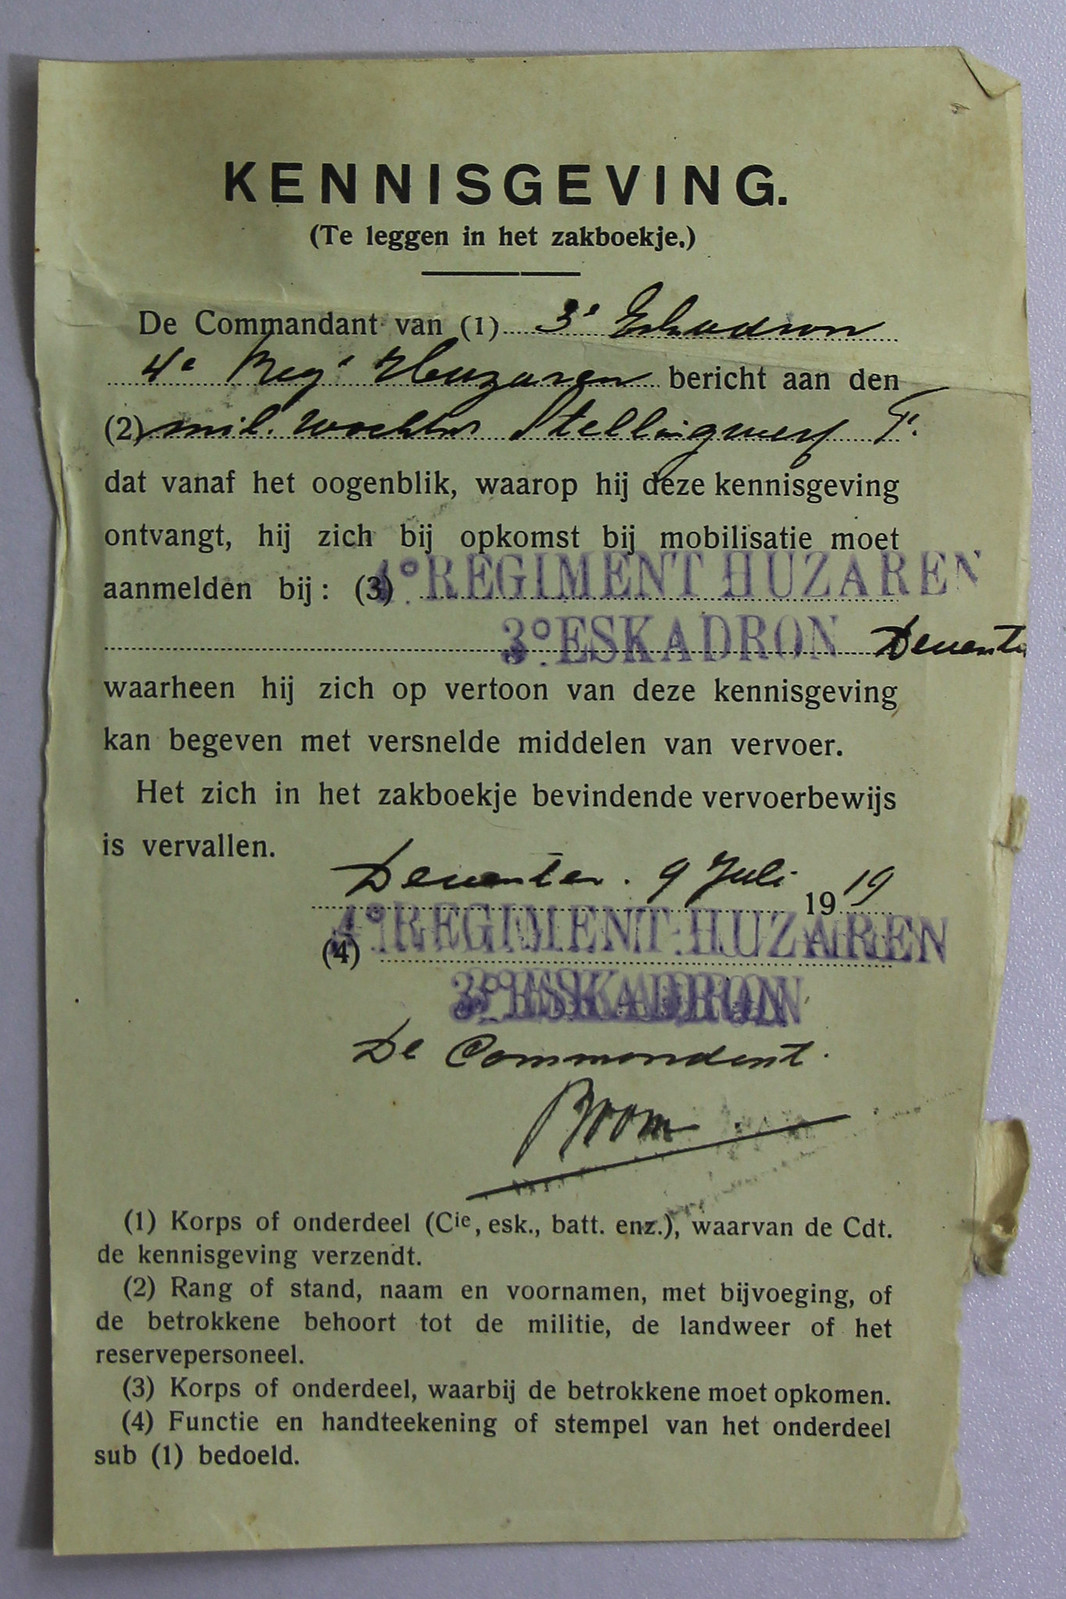 KENNISGEVING.
(Te leggen in het zakboekje.)
De Commandant van (1) 3e Eskadron
4e Regt Huzaren bericht aan den
(2) mil. wachtm Stellingwerf T.
dat vanaf het oogenblik, waarop hij deze kennisgeving
ontvangt, hij zich bij opkomst bij mobilisatie moet
aanmelden bij: (3) 4e REGIMENT HUZAREN
3e ESKADRON Deventer
waarheen hij zich op vertoon van deze kennisgeving
kan begeven met versnelde middelen van vervoer.
Het zich in het zakboekje bevindende vervoerbewijs
is vervallen.
Deventer. 9 Juli 1919
(4) 4e REGIMENT HUZAREN
3e ESKADRON
De Commandant.
Boom
(1) Korps of onderdeel (Cie, esk., batt. enz.), waarvan de Cdt.
de kennisgeving verzendt.
(2) Rang of stand, naam en voornamen, met bijvoeging, of
de betrokkene behoort tot de militie, de landweer of het
reservepersoneel.
(3) Korps of onderdeel, waarbij de betrokkene moet opkomen.
(4) Functie en handteekening of stempel van het onderdeel
sub (1) bedoeld.